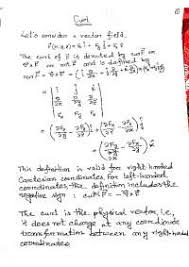 Curl
Let's consider a vector field,
F(x,y,z) = F₁ î + F₂ ĵ + F₃ k̂
The curl of F is denoted by curl F or
∇×F or rot F and is defined by
curl F = ∇×F =
= | î ĵ k̂ |
| ∂/∂x ∂/∂y ∂/∂z |
| F₁ F₂ F₃ |
This definition is valid for right handed
Cartesian coordinates. For left-handed
coordinates, the definition includes the
negative sign: curl F = -∇×F
The curl is the physical vector, i.e.,
it does not change at any coordinate
transformation between any right-handed
coordinates.